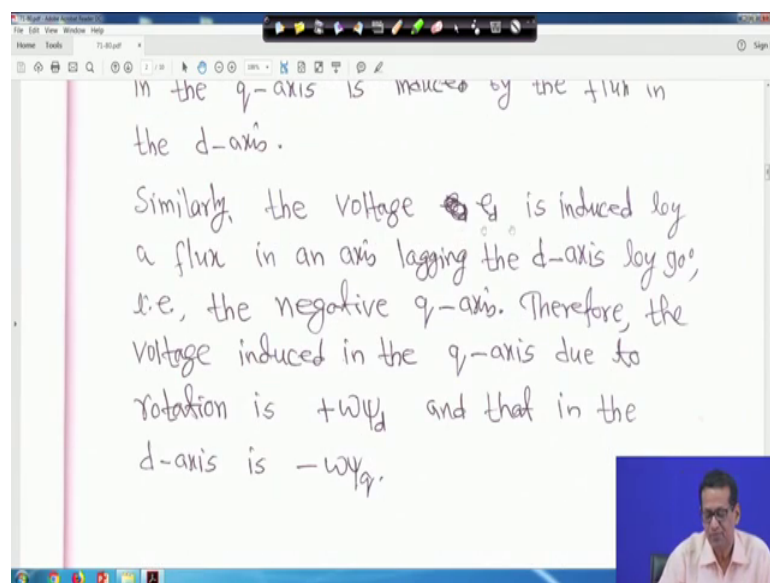 71-80.pdf - Adobe Acrobat Reader DC
File Edit View Window Help
Home Tools 71-80.pdf × Sign
2 / 10
in the q-axis is induced by the flux in
the d-axis.
Similarly, the voltage e_d is induced by
a flux in an axis lagging the d-axis by 90°,
i.e, the negative q-axis. Therefore, the
voltage induced in the q-axis due to
rotation is +ωψ_d and that in the
d-axis is -ωψ_q.